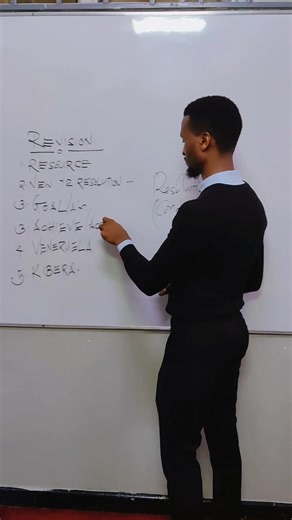 REVISION
1 RESOURCE
2 NEW YR RESOLUTION –
3 GOAL/
3 ACHIEVE/
4 VENERUELA
5 KIBERA.